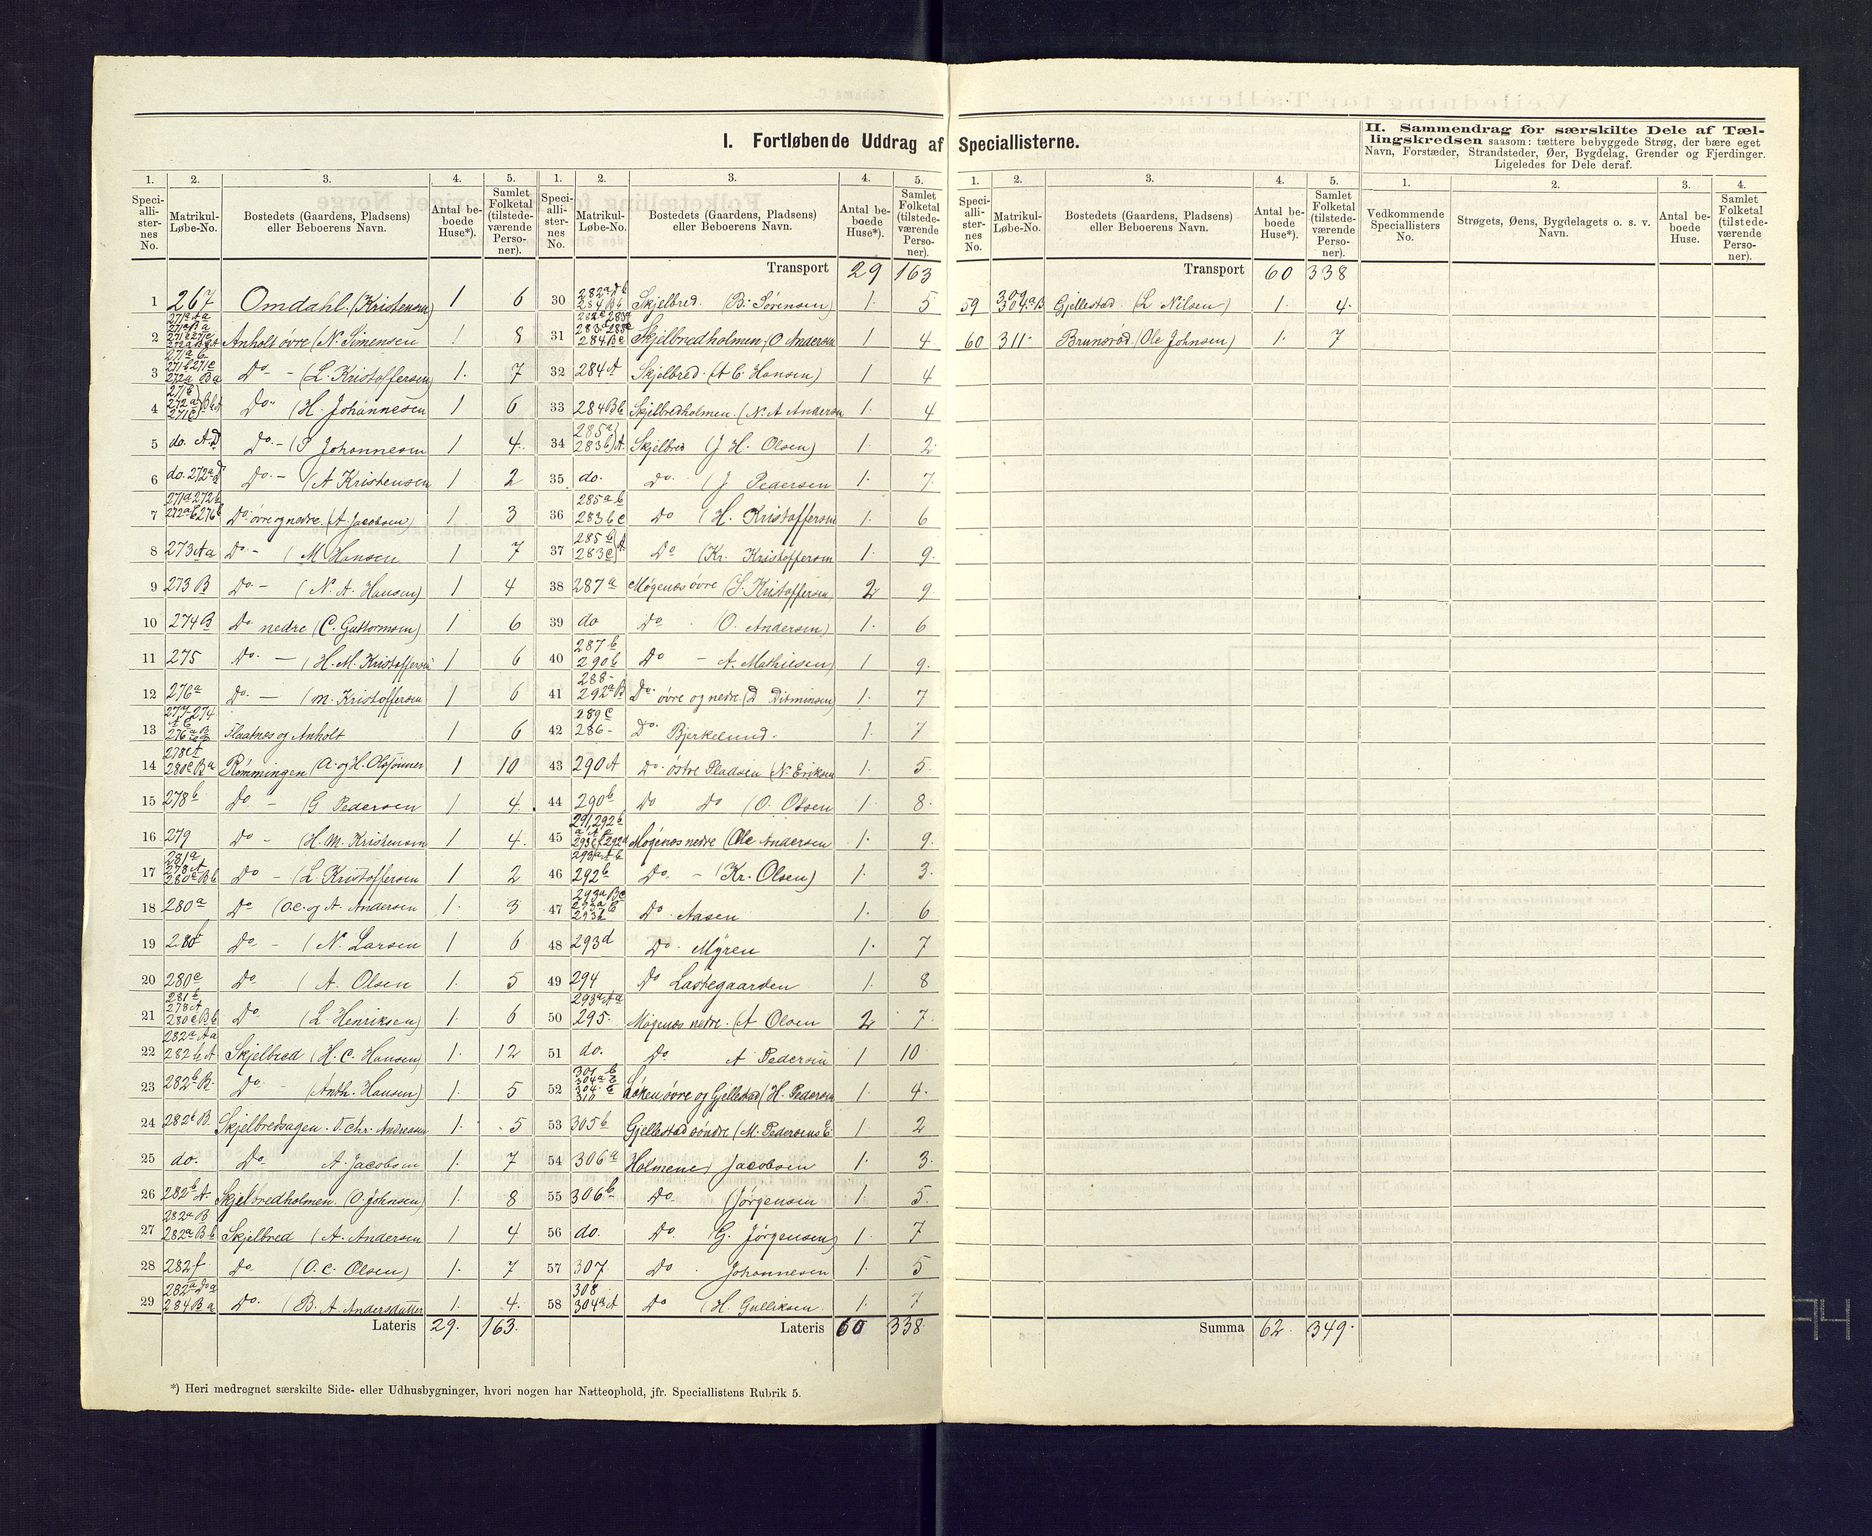 I. Fortløbende Uddrag af Speciallisterne.
II. Sammendrag for særskilte Dele af Tæl-
lingskredsen saasom: tættere bebyggede Strøg, der bære eget
Navn, Forstæder, Strandsteder, Øer, Bygdelag, Grender og Fjerdinger.
Ligeledes for Dele deraf.
1. 2. 3. 4. 5.
Speciallisternes No. Matrikul-Løbe-No. Bostedets (Gaardens, Pladsens) eller Beboerens Navn. Antal beboede Huse*). Samlet Folketal (tilstedeværende Personer).
1 267 Omdahl (Kristensen) 1 6
2 Anholt øvre (N. Simensen 1 8
3 Do - (L Kristoffersen) 1. 7
4 Do - (H. Johannesen 1 6
5 do. A.D Do - (S Johannesen 1 4.
6 do. 272a Do - (A Kristensen 1 2
7 Do øvre og nedre (A. Jacobsen) 1 3
8 273Aa Do - (M Hansen 1 7
9 273 B Do - (N. A. Hansen) 1 4
10 274B Do nedre (C. Guttormsen) 1 6
11 275 Do - (H. M. Kristoffersen 1 6
12 276a Do - (M. Kristoffersen 1 6
13 Flaatnes og Anholt 1 6
14 278A 280c Ba Rømmingen (A. og H. Olsønner 1 10
15 278b Do - (G Pedersen 1 4.
16 279 Do - (H. M. Kristensen 1 4.
17 281a 278A 280c Bb Do - (L. Kristoffersen 1 2
18 280a Do (O.C. og A. Andersen 1. 3
19 280b Do - (N. Larsen 1 6
20 280c Do (A. Olsen 1. 5
21 281b 278A 280c Bb Do (L. Henriksen) 1. 6
22 282a Aa 282b A Skjelbred (H. C. Hansen) 1. 12
23 282b B. Do - (Anth. Hansen) 1. 5
24 282b B. Skjelbredsagen. Chr. Andreasen 1. 5
25 do. Do A. Jacobsen 1. 7
26 282b A. Skjelbredholmen. (O. Johnsen) 1. 8
27 282a B 282a Bb Skjelbred (A. Andersen 1 4
28 282f Do (O. C. Olsen) 1. 7
29 284 Ba Do. (B. A. Andersdatter 1. 4.
Lateris 29. 163.
1. 2. 3. 4. 5.
Speciallisternes No. Matrikul-Løbe-No. Bostedets (Gaardens, Pladsens) eller Beboerens Navn. Antal beboede Huse*). Samlet Folketal (tilstedeværende Personer).
Transport 29 163
30 284 Bb Skjelbred. (B. Sørensen) 1. 5
31 284 Bc Skjelbredholmen (O Andersen 1 4
32 284 A Skjelbred. (A C. Hansen) 1 4
33 284Bb Skjelbredholmen. (N. A Andersen 1. 4
34 285a 283b A. Skjelbred (J H. Olsen) 1. 2
35 do. Do. (J Pedersen 1. 7.
36 285a b 283b c Do (H. Kristoffersen 1. 6
37 285b 283c A Do (Kr. Kristoffersen 1. 9.
38 287a Mogenæs øvre (S. Kristoffersen 2 9
39 do Do (O. Andersen) 1. 6
40 287b 290b Do - A. Mathiesen) 1 9.
41 288- 292a B Do. øvre og nedre. (D Ditminsen) 1. 7
42 289c 286- Do. Bjerkelund. 1. 7
43 290 A Do. østre Pladsen (N. Eriksen 1. 5
44 290b Do Do (O. Olsen 1. 8.
45 Mogenæs nedre (Ole Andersen 1. 9.
46 292b Do. - (Kr. Olsen) 1. 3.
47 Do. Aasen 1. 6
48 293d Do. Myren 1. 7
49 294 Do Lastegaarden 1. 8
50 293a Aa 295. Mogenæs nedre. (A Olsen 2 7.
51 do. Do A Pedersen 1 10
52 Løken øvre og Gjellestad (H. Pedersen 1. 4.
53 305b Gjellestad søndre (M. Pedersens E. 1 2
54 306a Holmene Jacobsen 1. 3.
55 306b Do. (Jørgensen 1. 5.
56 do. Do. G. Jørgensen) 1. 7
57 307 Do Johannesen 1. 5
58 308 304a A Do (H. Gulliksen. 1. 7
Lateris 60 338.
1. 2. 3. 4. 5.
Speciallisternes No. Matrikul-Løbe-No. Bostedets (Gaardens, Pladsens) eller Beboerens Navn. Antal beboede Huse*). Samlet Folketal (tilstedeværende Personer).
Transport 60 338
59 309 304a B Gjellestad (L Nilsen) 1. 4.
60 311 Brunsrød (Ole Johnsen) 1. 7
Summa 62. 349.
1. 2. 3. 4.
Vedkommende Speciallisters No. Strøgets, Øens, Bygdelagets o. s. v. Navn. Antal beboede Huse. Samlet Folketal (tilstedeværende Personer).
*) Heri medregnet særskilte Side- eller Udhusbygninger, hvori nogen har Natteophold, jfr. Speciallistens Rubrik 5.